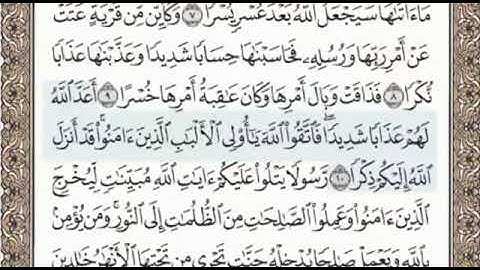 مَآ ءَاتَىٰهَا سَيَجْعَلُ ٱللَّهُ بَعْدَ عُسْرٍ يُسْرًا ٧ وَكَأَيِّن مِّن قَرْيَةٍ عَتَتْ
عَنْ أَمْرِ رَبِّهَا وَرُسُلِهِۦ فَحَاسَبْنَٰهَا حِسَابًا شَدِيدًا وَعَذَّبْنَٰهَا عَذَابًا
نُّكْرًا ٨ فَذَاقَتْ وَبَالَ أَمْرِهَا وَكَانَ عَٰقِبَةُ أَمْرِهَا خُسْرًا ٩ أَعَدَّ ٱللَّهُ
لَهُمْ عَذَابًا شَدِيدًا ۖ فَٱتَّقُوا۟ ٱللَّهَ يَٰٓأُو۟لِى ٱلْأَلْبَٰبِ ٱلَّذِينَ ءَامَنُوا۟ ۚ قَدْ أَنزَلَ
ٱللَّهُ إِلَيْكُمْ ذِكْرًا ١٠ رَّسُولًا يَتْلُوا۟ عَلَيْكُمْ ءَايَٰتِ ٱللَّهِ مُبَيِّنَٰتٍ لِّيُخْرِجَ
ٱلَّذِينَ ءَامَنُوا۟ وَعَمِلُوا۟ ٱلصَّٰلِحَٰتِ مِنَ ٱلظُّلُمَٰتِ إِلَى ٱلنُّورِ ۚ وَمَن يُؤْمِنۢ
بِٱللَّهِ وَيَعْمَلْ صَٰلِحًا يُدْخِلْهُ جَنَّٰتٍ تَجْرِى مِن تَحْتِهَا ٱلْأَنْهَٰرُ خَٰلِدِينَ